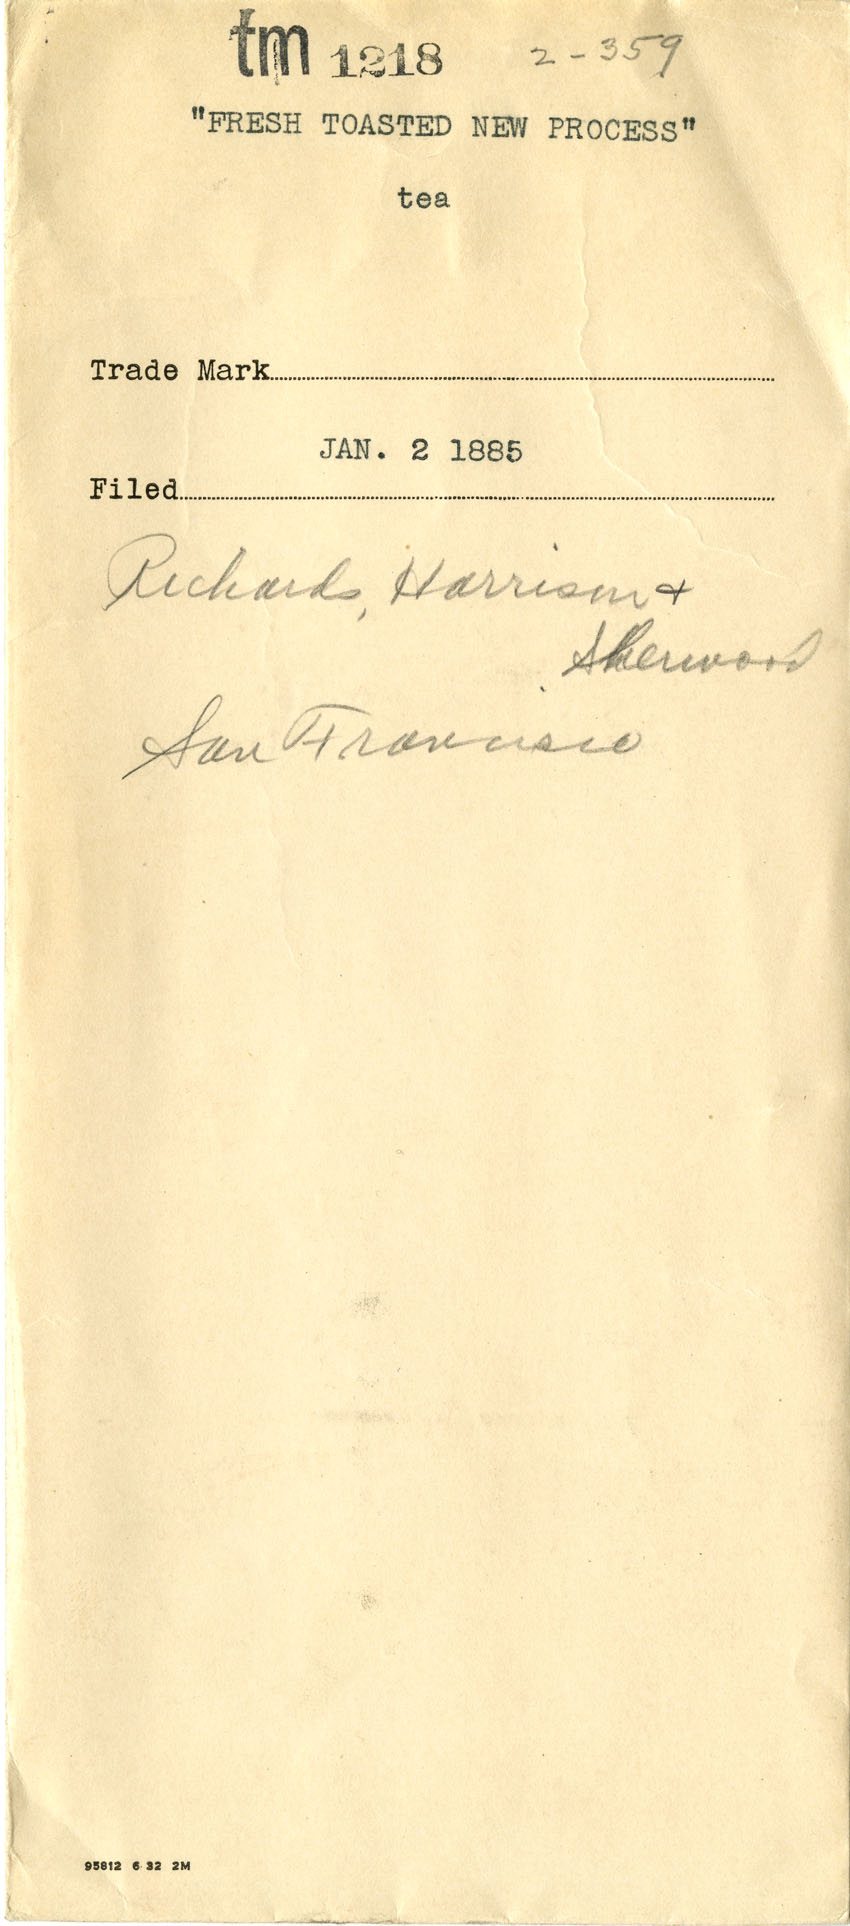 tm 1218 2-359
"FRESH TOASTED NEW PROCESS"
tea
Trade Mark
JAN. 2 1885
Filed
Richards, Harrison +
Sherwood
San Francisco
95812 6 32 2M